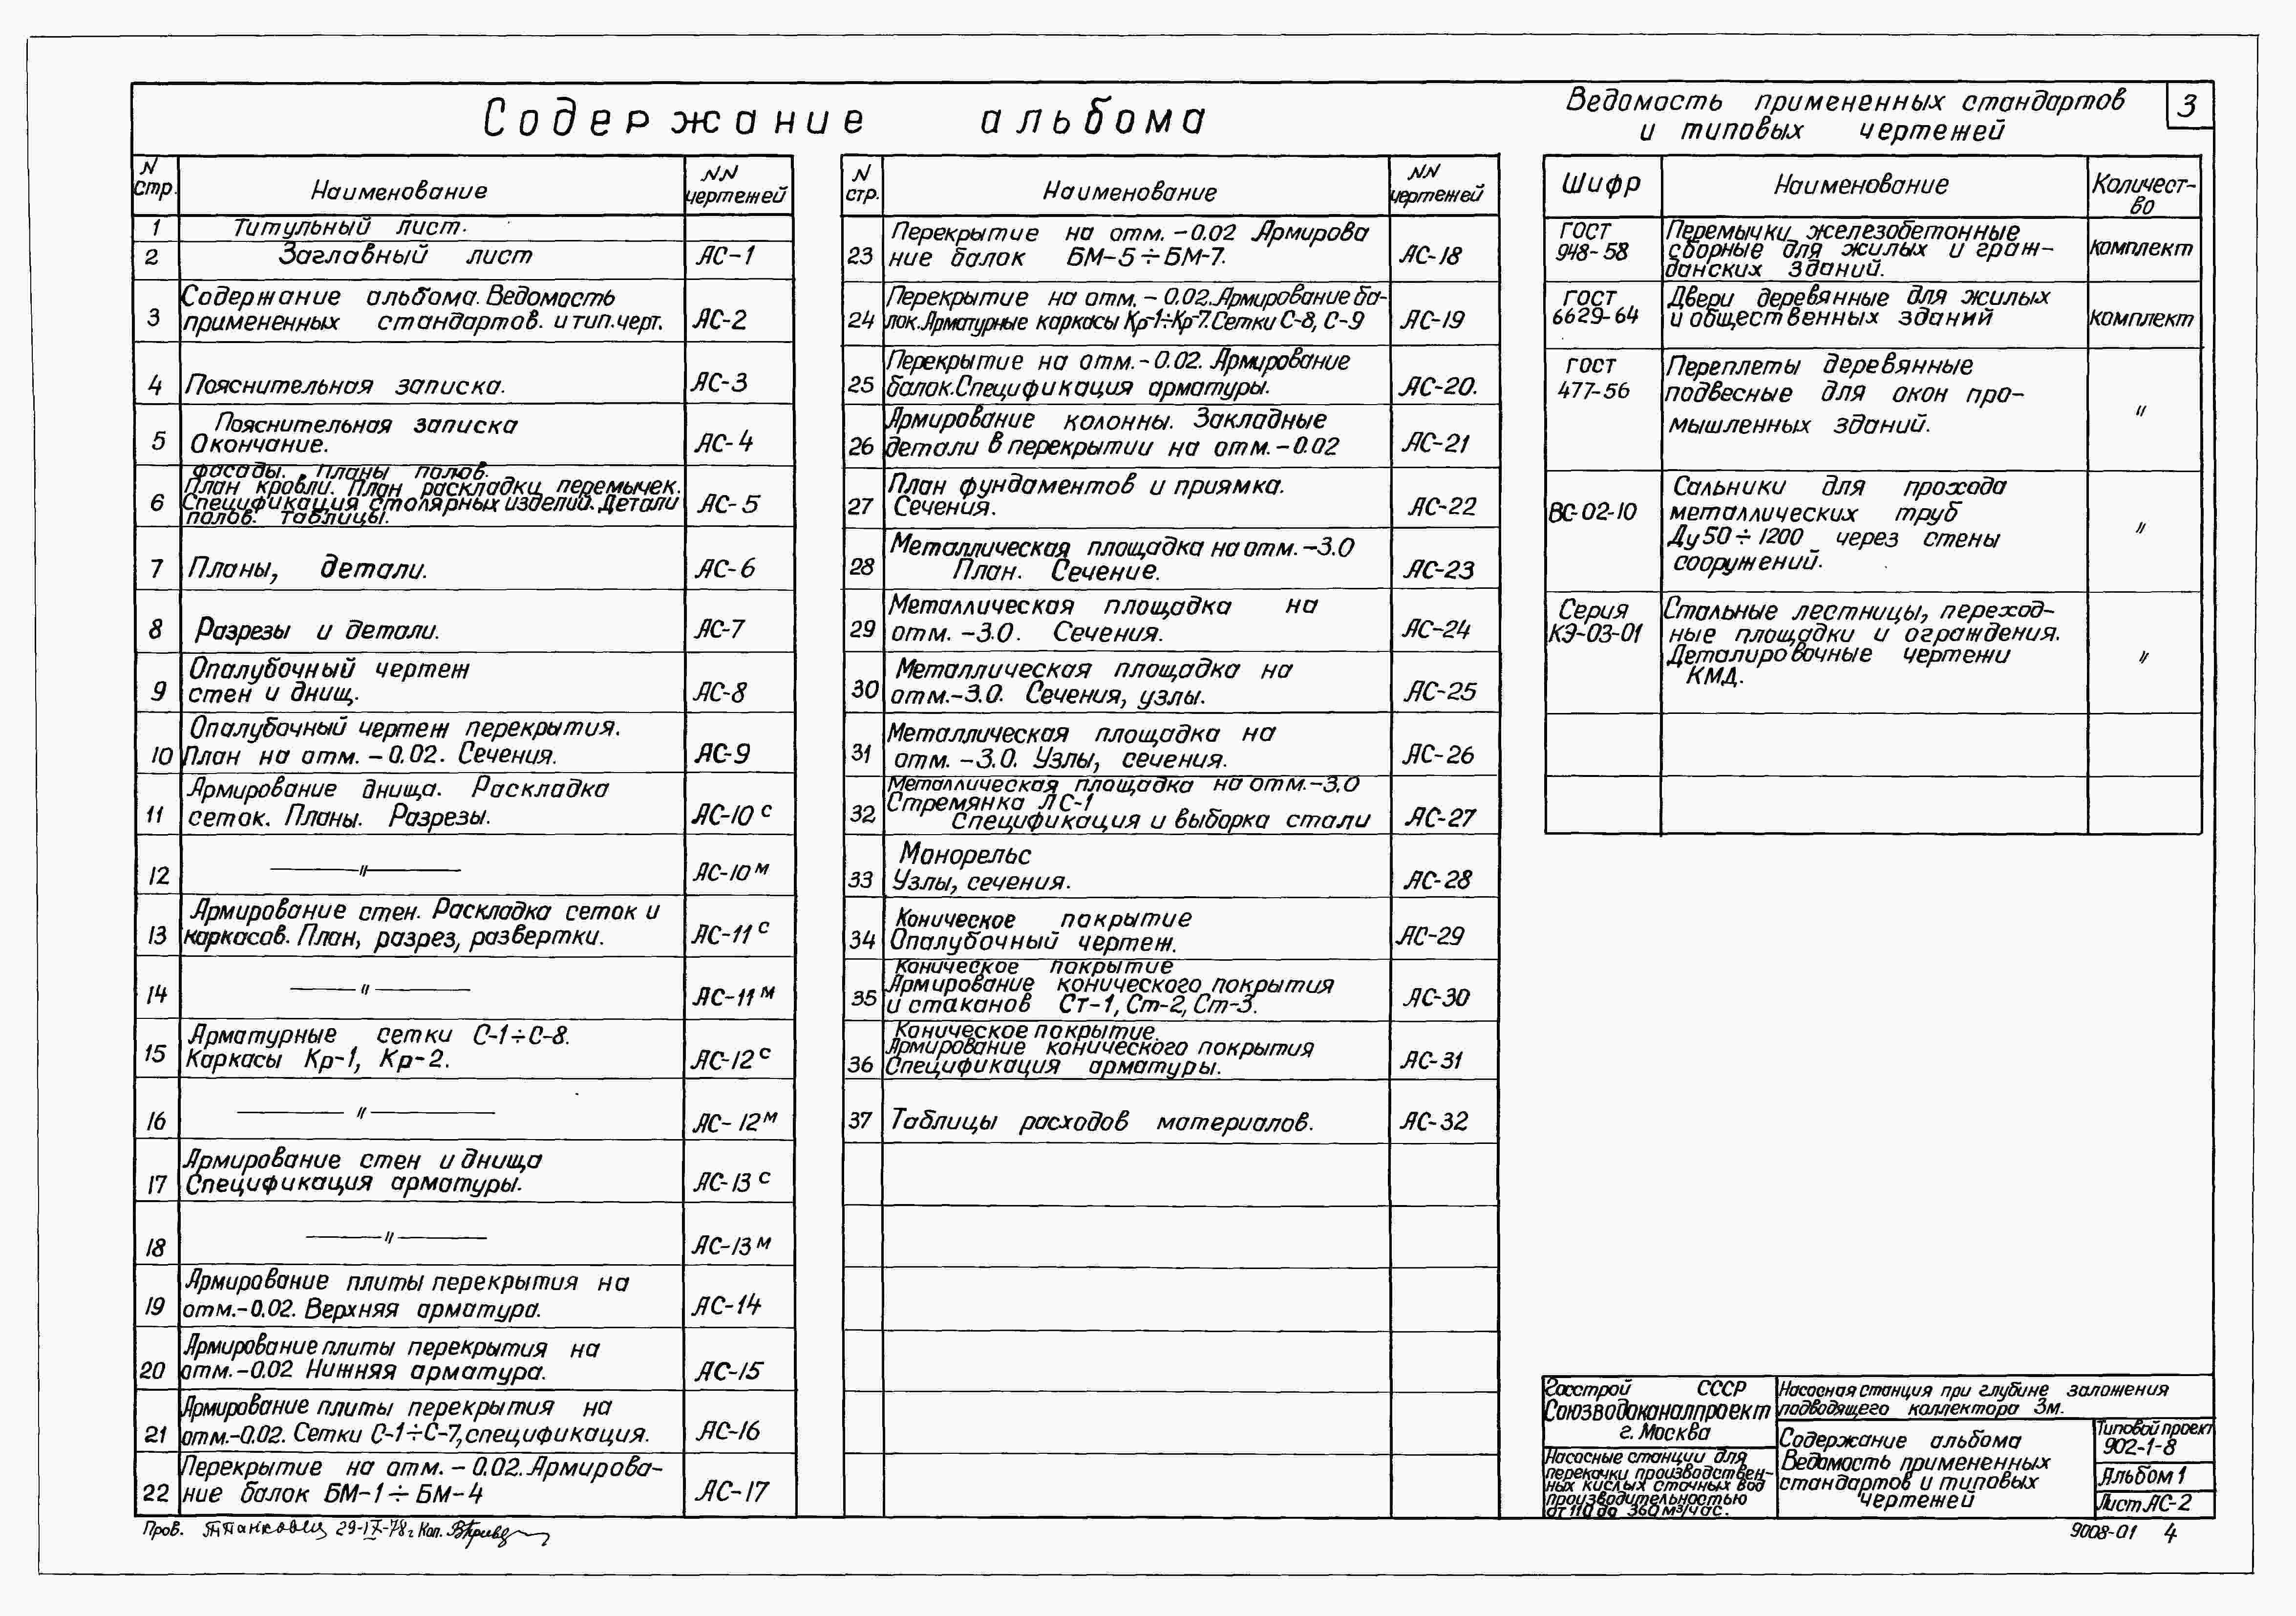 Содержание альбома
N стр. Наименование NN чертежей
1 Титульный лист.
2 Заглавный лист АС-1
Содержание альбома. Ведомость
3 примененных стандартов. и тип.черт. АС-2
4 Пояснительная записка. АС-3
Пояснительная записка
5 Окончание. АС-4
Фасады. Планы полов.
План кровли. План раскладки перемычек.
6 Спецификация столярных изделий. Детали АС-5
полов. Таблицы.
7 Планы, детали. АС-6
8 Разрезы и детали. АС-7
Опалубочный чертеж
9 стен и днищ. АС-8
Опалубочный чертеж перекрытия.
10 План на отм. -0.02. Сечения. АС-9
Армирование днища. Раскладка
11 сеток. Планы. Разрезы. АС-10 с
12 —〃— АС-10 м
Армирование стен. Раскладка сеток и
13 каркасов. План, разрез, развертки. АС-11 с
14 —〃— АС-11 м
Арматурные сетки С-1÷С-8.
15 Каркасы Кр-1, Кр-2. АС-12 с
16 —〃— АС-12 м
Армирование стен и днища
17 Спецификация арматуры. АС-13 с
18 —〃— АС-13 м
Армирование плиты перекрытия на
19 отм.-0.02. Верхняя арматура. АС-14
Армирование плиты перекрытия на
20 отм.-0.02 Нижняя арматура. АС-15
Армирование плиты перекрытия на
21 отм.-0.02. Сетки С-1÷С-7, спецификация. АС-16
Перекрытие на отм. -0.02. Армирова-
22 ние балок БМ-1÷БМ-4 АС-17
N стр. Наименование NN чертежей
Перекрытие на отм. -0.02 Армирова
23 ние балок БМ-5÷БМ-7. АС-18
Перекрытие на отм. -0.02. Армирование ба-
24 лок. Арматурные каркасы Кр-1÷Кр-7. Сетки С-8, С-9 АС-19
Перекрытие на отм.-0.02. Армирование
25 балок. Спецификация арматуры. АС-20.
Армирование колонны. Закладные
26 детали в перекрытии на отм.-0.02 АС-21
План фундаментов и приямка.
27 Сечения. АС-22
Металлическая площадка на отм.-3.0
28 План. Сечение. АС-23
Металлическая площадка на
29 отм. -3.0. Сечения. АС-24
Металлическая площадка на
30 отм.-3.0. Сечения, узлы. АС-25
Металлическая площадка на
31 отм. -3.0. Узлы, сечения. АС-26
Металлическая площадка на отм.-3.0
Стремянка ЛС-1
32 Спецификация и выборка стали АС-27
Монорельс
33 Узлы, сечения. АС-28
Коническое покрытие
34 Опалубочный чертеж. АС-29
Коническое покрытие
Армирование конического покрытия
35 и стаканов Ст-1, Ст-2, Ст-3. АС-30
Коническое покрытие.
Армирование конического покрытия
36 Спецификация арматуры. АС-31
37 Таблицы расходов материалов. АС-32
Ведомость примененных стандартов
и типовых чертежей
3
Шифр Наименование Количест-
во
ГОСТ Перемычки железобетонные
948-58 сборные для жилых и граж- комплект
данских зданий.
ГОСТ Двери деревянные для жилых
6629-64 и общественных зданий комплект
ГОСТ Переплеты деревянные
477-56 подвесные для окон про-
мышленных зданий. 〃
Сальники для прохода
ВС-02-10 металлических труб 〃
Ду 50÷1200 через стены
сооружений.
Серия Стальные лестницы, переход-
КЭ-03-01 ные площадки и ограждения.
Деталировочные чертежи 〃
КМД.
Госстрой СССР
Союзводоканалпроект
г. Москва
Насосные станции для
перекачки производствен-
ных кислых сточных вод
производительностью
от 110 до 360 м³/час.
Насосная станция при глубине заложения
подводящего коллектора 3м.
Содержание альбома
Ведомость примененных
стандартов и типовых
чертежей
Типовой проект
902-1-8
Альбом 1
Лист АС-2
Пров. 29-IX-78г Коп.
9008-01 4